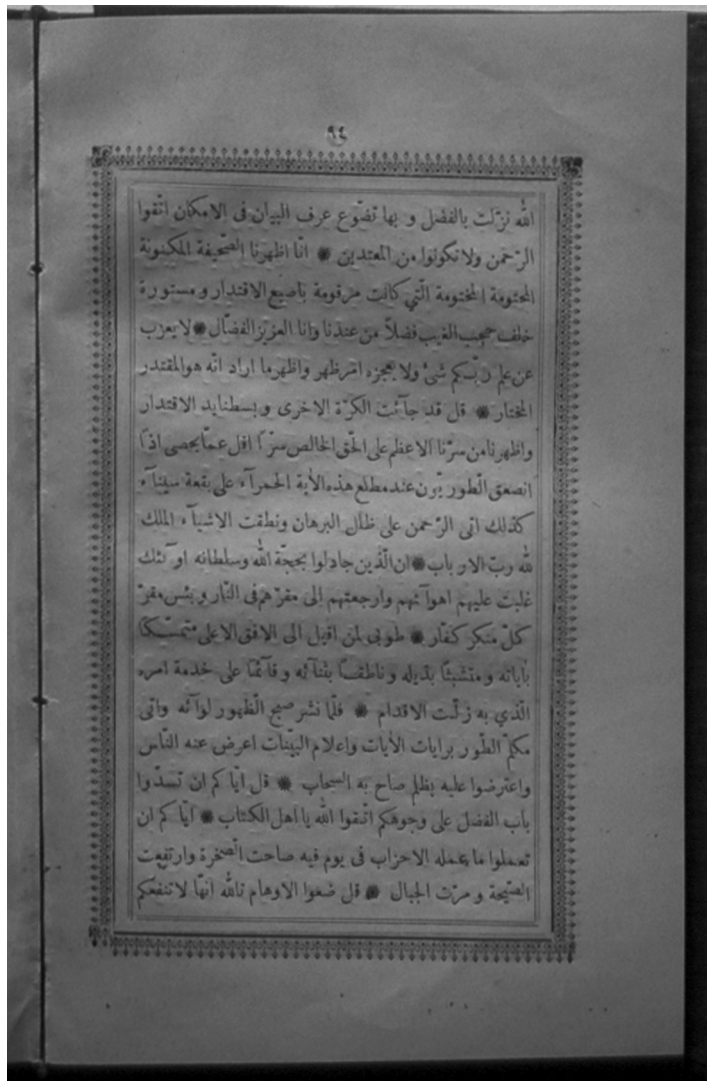 ٩٤
الله نزّلت بالفضل و بها تضّوع عرف البيان فى الامكان اتّقوا
الرّحمن ولا تكونوا من المعتدين * انّا اظهرنا الصّحيفة المكنونة
المختومة الّتي كانت مرقومة باصبع الاقتدار و مستورة
خلف حجب الغيب فضلاً من عندنا وانا العزيز الفضّال * لا يعزب
عن علم ربّكم شئ ولا يعجزه امر ظهر واظهر ما اراد انّه هو المقتدر
المختار * قل قد جآئت الكرّة الاخرى و بسطنا يد الاقتدار
واظهرنا من سرّنا الاعظم على الحّق الخالص سرّا اقل عمّا يحصى اذا
انصعق الّطور يّون عند مطلع هذه الأية الحمرآء على بقعة سينآء
كذلك اتى الرّحمن على ظلل البرهان ونطقت الاشيآء الملك
لله ربّ الار باب * ان الّذين جادلوا بحجّة الله وسلطانه اولآئك
غلبت عليهم اهوآئهم وارجعتهم الى مقرّهم فى النّار و بئس مقرّ
كلّ منكر كفّار * طوبى لمن اقبل الى الافق الاعلى متمسّكا
بأياته و متشبثا بذيله و ناطقا بثنآئه و قآئما على خدمة امره
الّذي به زلّت الاقدام * فلّما نشر صبح الّظهور لوآئه واتى
مكلّم الطّور برايات الأيات واعلام البيّنات اعرض عنه النّاس
واعترضوا عليه بظلم صاح به السحاب * قل ايّا كم ان تسدّوا
باب الفضل على وجوهكم اتّقوا الله يا اهل الكتاب * ايّا كم ان
تعملوا ما عمله الاحزاب فى يوم فيه صاحت الّصخرة وارتفعت
الصّيحة و مرّت الجبال * قل ضعوا الاوهام تالله انّها لا تنفعكم